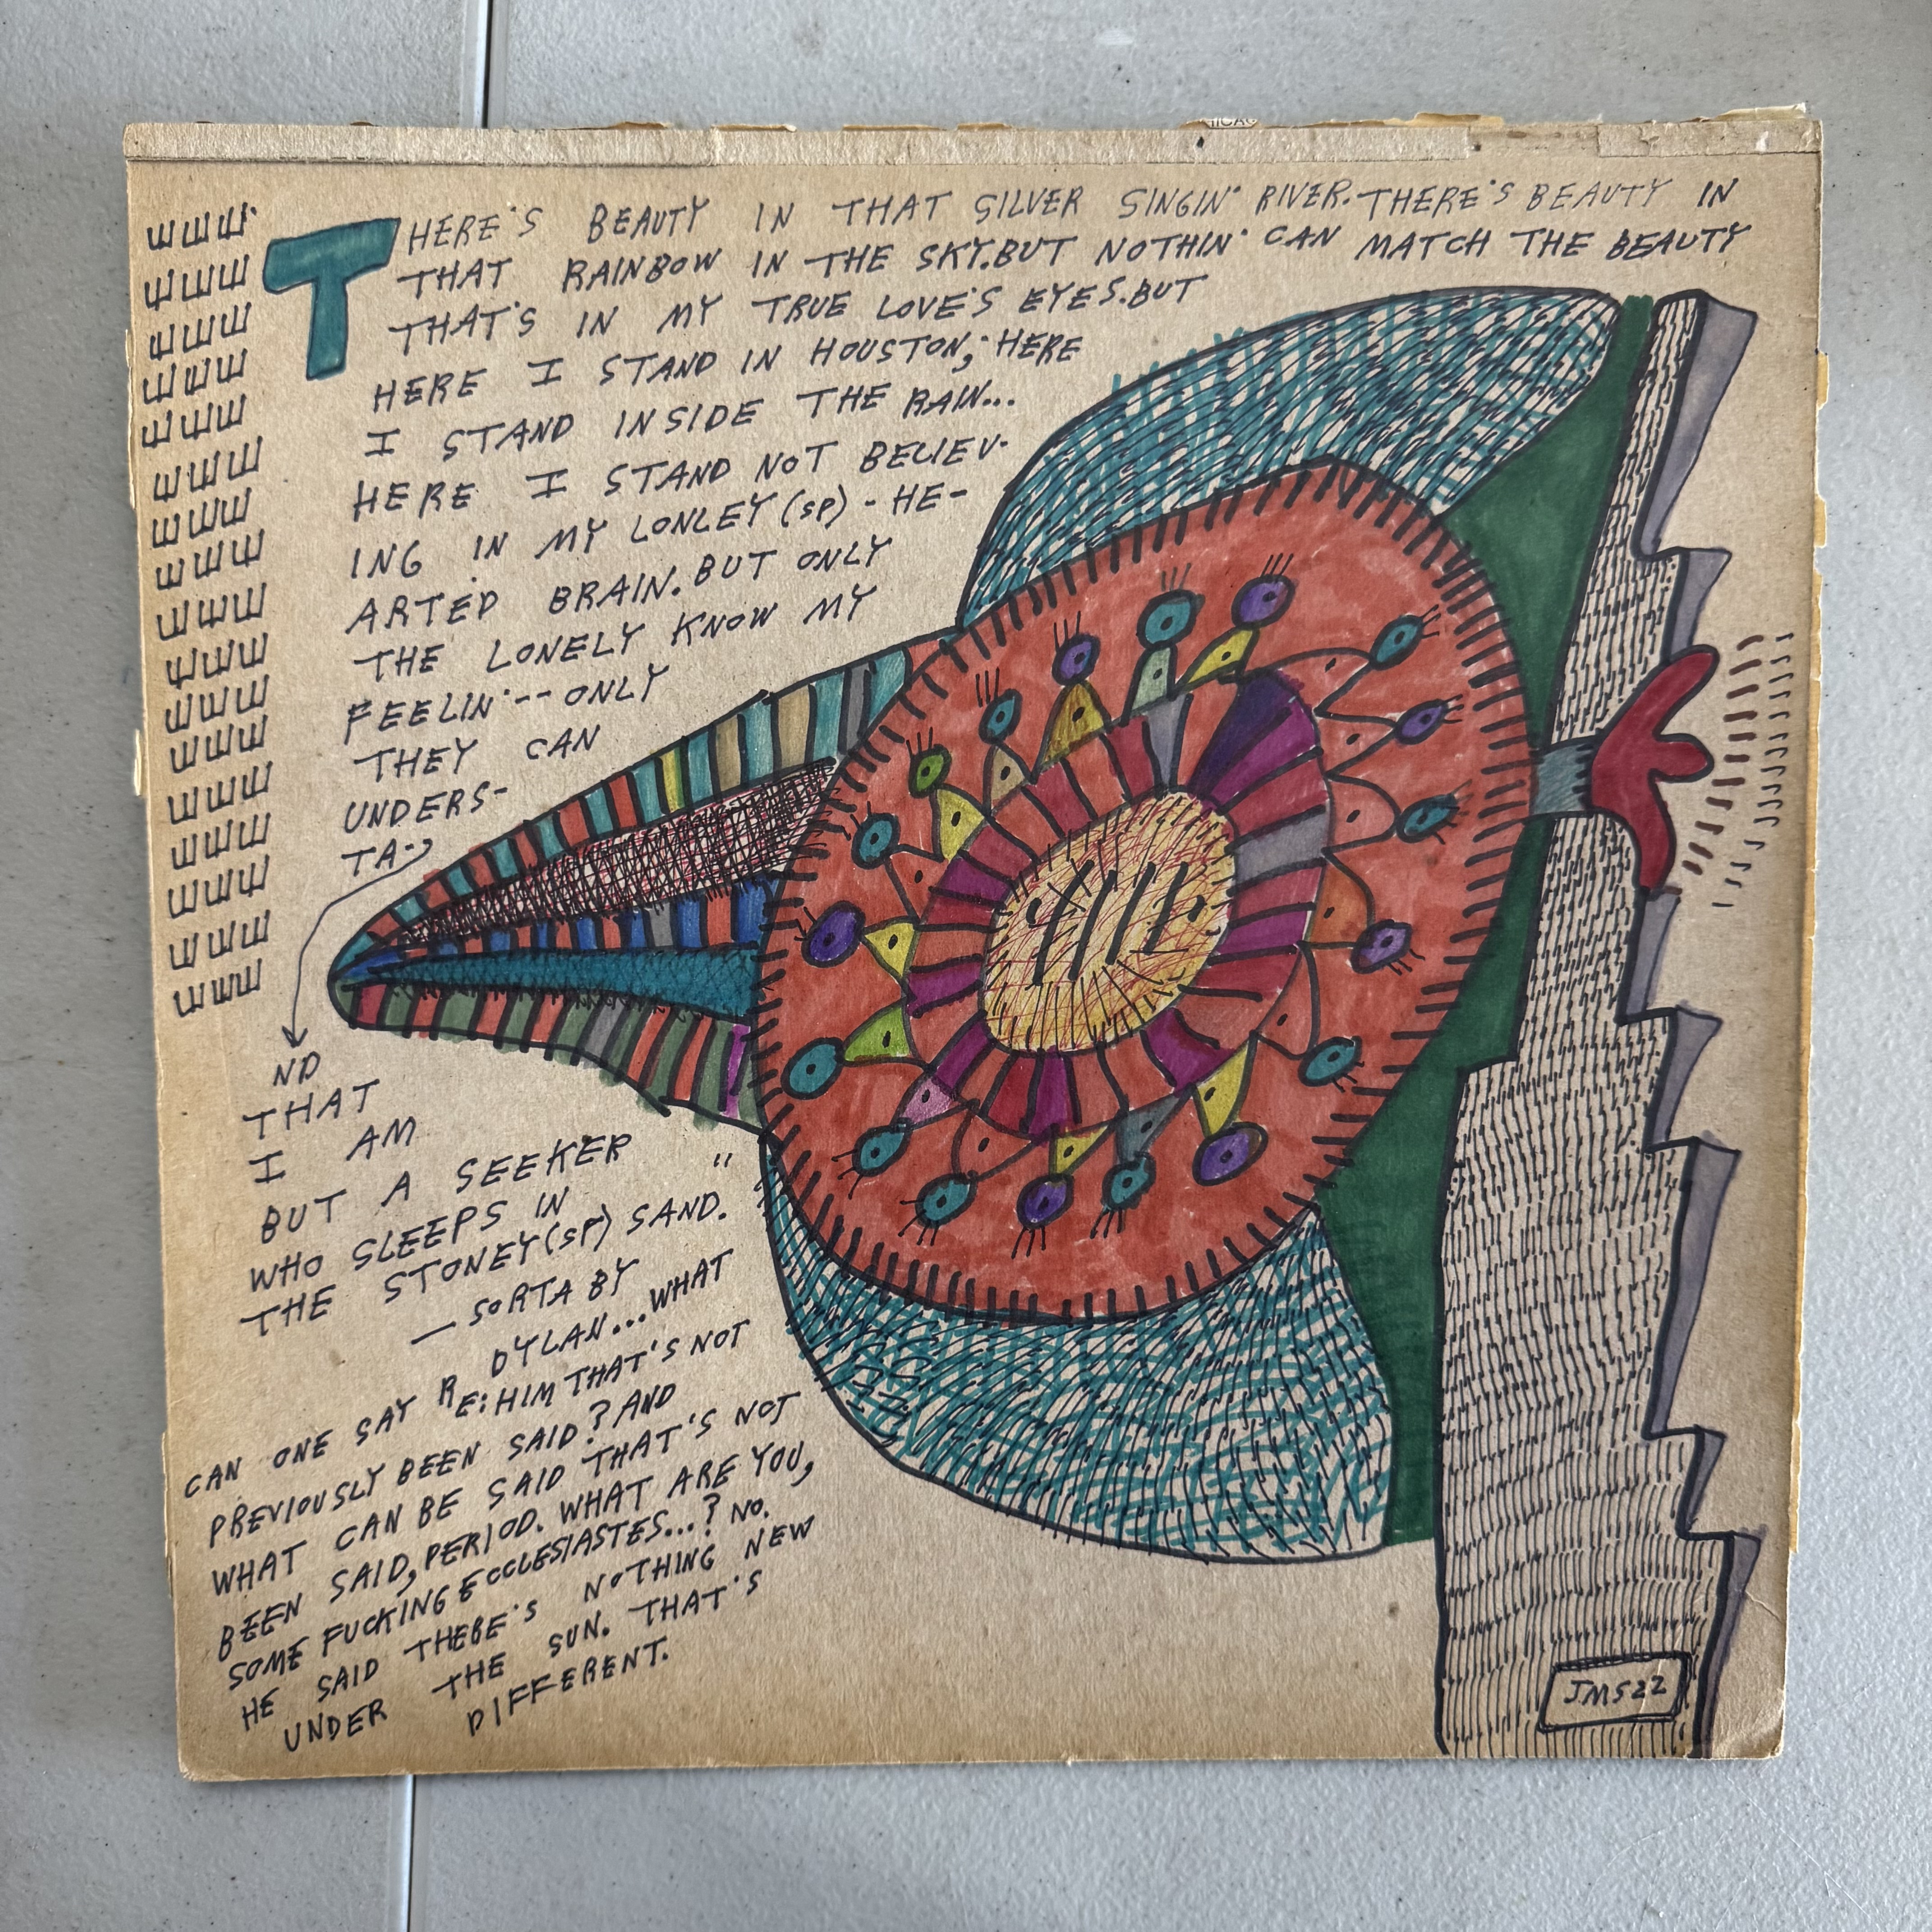 THERE'S BEAUTY IN THAT SILVER SINGIN' RIVER. THERE'S BEAUTY IN
THAT RAINBOW IN THE SKY. BUT NOTHIN' CAN MATCH THE BEAUTY
THAT'S IN MY TRUE LOVE'S EYES. BUT
HERE I STAND IN HOUSTON; HERE
I STAND INSIDE THE RAIN...
HERE I STAND NOT BELIEV-
ING IN MY LONLEY (SP) - HE-
ARTED BRAIN. BUT ONLY
THE LONELY KNOW MY
FEELIN' -- ONLY
THEY CAN
UNDERS-
TA-
ND
THAT
I AM
BUT A SEEKER
WHO SLEEPS IN
THE STONEY (SP) SAND."
— SORTA BY
DYLAN... WHAT
CAN ONE SAY RE: HIM THAT'S NOT
PREVIOUSLY BEEN SAID? AND
WHAT CAN BE SAID THAT'S NOT
BEEN SAID, PERIOD. WHAT ARE YOU,
SOME FUCKING ECCLESIASTES...? NO.
HE SAID THERE'S NOTHING NEW
UNDER THE SUN. THAT'S
DIFFERENT.
JMS22